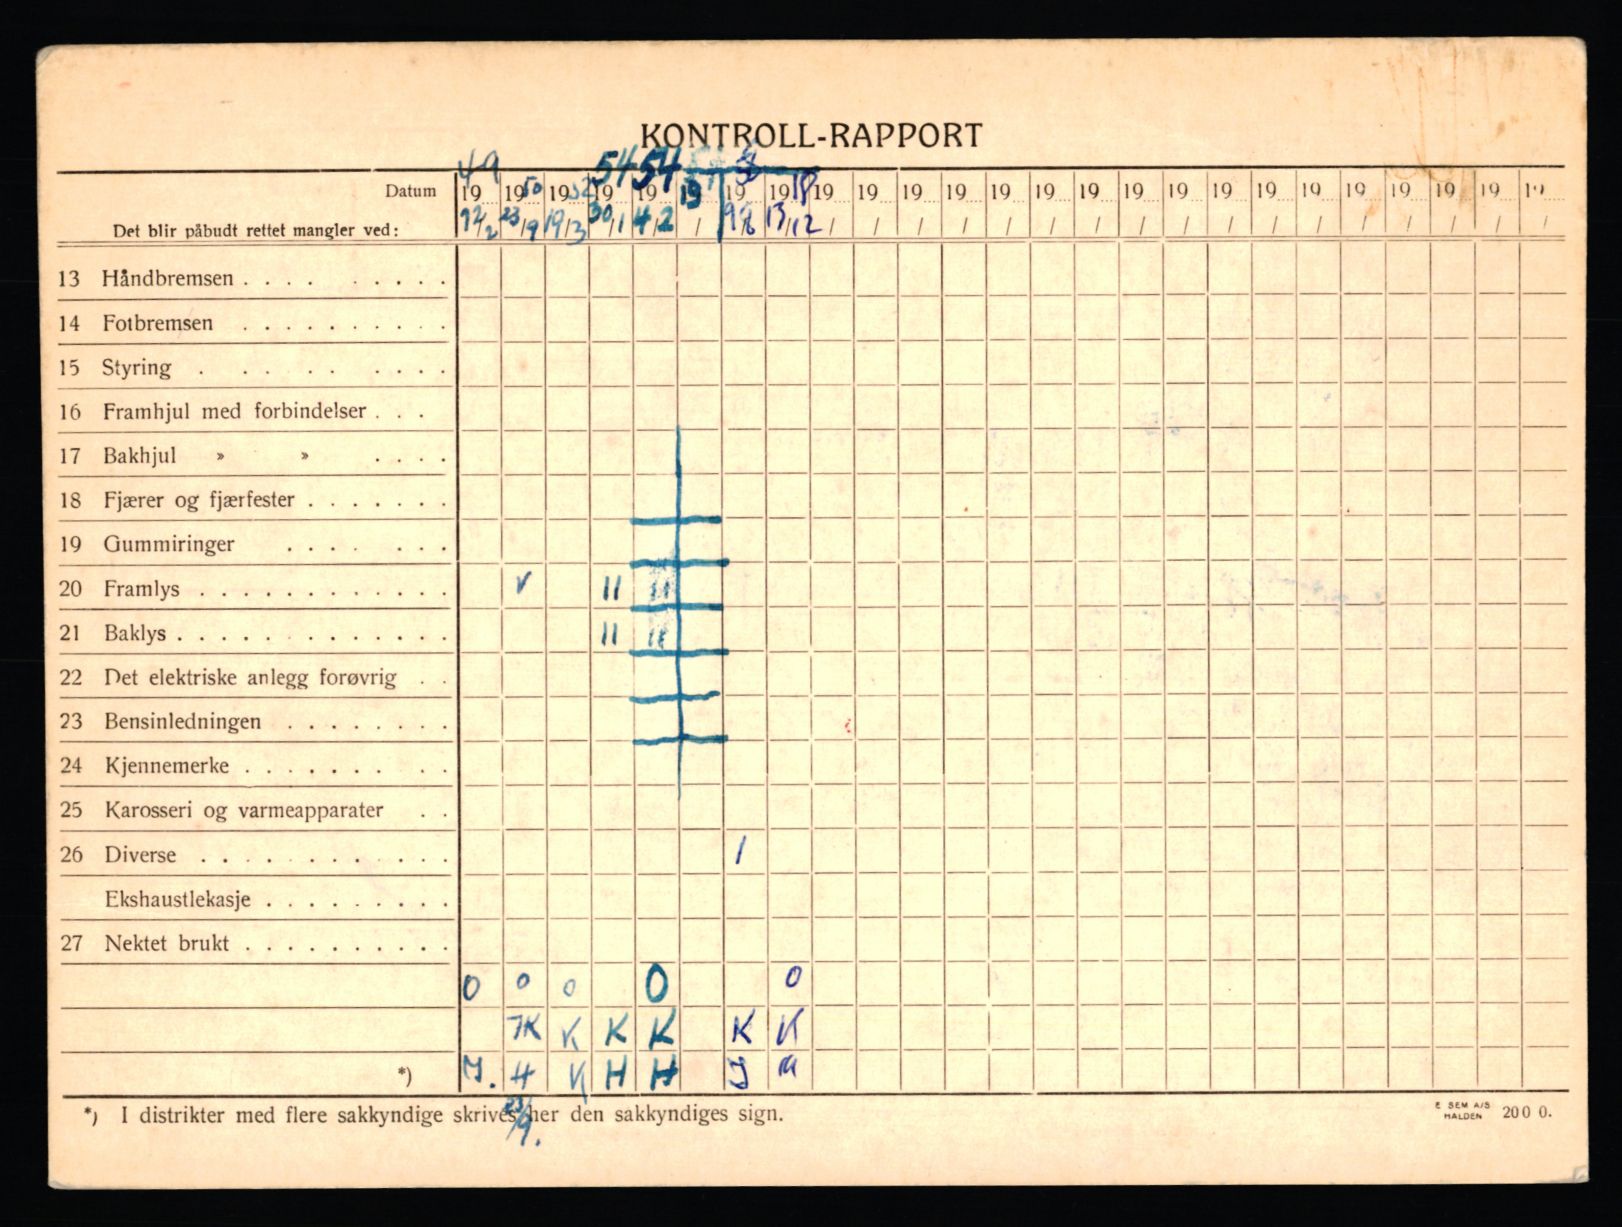 KONTROLL-RAPPORT
49 54 54
Datum 19 19 50 19 52 19 19 19 19 19 18 19 19 19 19 19 19 19 19 19 19 19 19 19 19 19 19 19
Det blir påbudt rettet mangler ved: 23/9 19/3 30/1 4/2 / 9/8 13/12 / / / / / / / / / / / / / / / / /
13 Håndbremsen . . . . . . . . .
14 Fotbremsen . . . . . . . . . .
15 Styring . . . . . . . . .
16 Framhjul med forbindelser . . .
17 Bakhjul » » . . . .
18 Fjærer og fjærfester . . . . . . .
19 Gummiringer . . . . . . .
20 Framlys . . . . . . . . . . . . V II II
21 Baklys . . . . . . . . . . . . . II II
22 Det elektriske anlegg forøvrig . .
23 Bensinledningen . . . . . . . .
24 Kjennemerke . . . . . . . . .
25 Karosseri og varmeapparater . .
26 Diverse . . . . . . . . . . . . I
Ekshaustlekasje . . . . . . . . .
27 Nektet brukt . . . . . . . . . .
0 0 0 0 0
K K K K K K
*) J. H K H H J M
23/9.
*) I distrikter med flere sakkyndige skrives her den sakkyndiges sign.
E SEM A/S
HALDEN 2000.